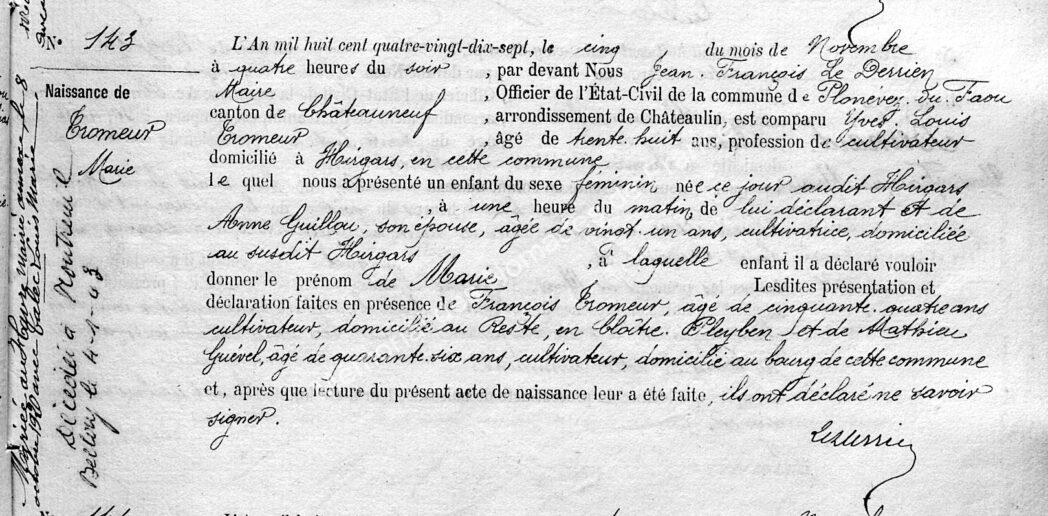 N° 143
Naissance de
Tromeur
Marie
L'An mil huit cent quatre-vingt-dix-sept, le cinq du mois de Novembre
à quatre heures du soir, par devant Nous Jean François Le Derrien
Maire, Officier de l'État-Civil de la commune de Plonévez du Faou
canton de Châteauneuf, arrondissement de Châteaulin, est comparu Yves Louis
Tromeur, âgé de trente huit ans, profession de cultivateur
domicilié à Hirgars, en cette commune
le quel nous a présenté un enfant du sexe féminin née ce jour audit Hirgars
, à une heure du matin, de lui déclarant et de
Anne Guillou, son épouse, âgée de vingt un ans, cultivatrice, domiciliée
au susdit Hirgars, à laquelle enfant il a déclaré vouloir
donner le prénom de Marie Lesdites présentation et
déclaration faites en présence de François Tromeur, âgé de cinquante quatre ans
cultivateur, domicilié au Reste, en Cloître Pleyben et de Mathieu
Guével, âgé de quarante six ans, cultivateur, domicilié au bourg de cette commune
et, après que lecture du présent acte de naissance leur a été faite, ils ont déclaré ne savoir
signer.
LeDerrien
Décédée à Montreuil
le 4-1-
Mariée au
octobre 1920 Louis Marie